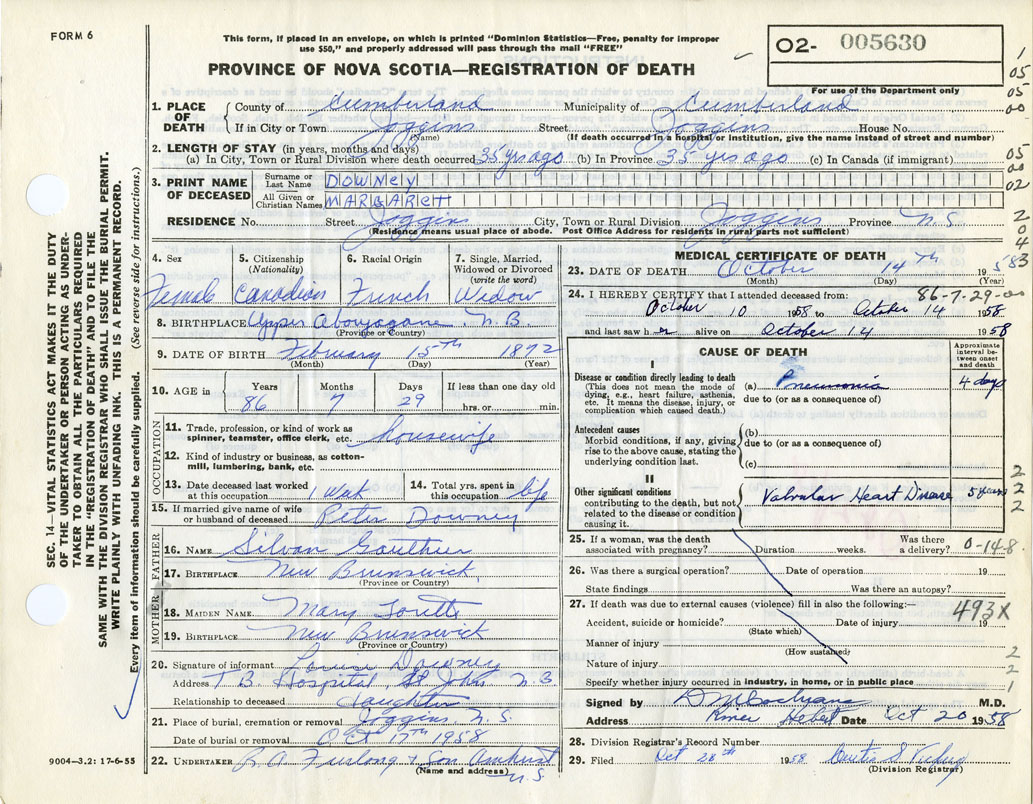 FORM 6
This form, if placed in an envelope, on which is printed "Dominion Statistics—Free, penalty for improper
use $50," and properly addressed will pass through the mail "FREE"
PROVINCE OF NOVA SCOTIA—REGISTRATION OF DEATH
O2- 005630
For use of the Department only
1. PLACE OF DEATH
County of Cumberland Municipality of Cumberland
If in City or Town Joggins Street Joggins House No.
(Name) (If death occurred in a hospital or institution, give the name instead of street and number)
2. LENGTH OF STAY (in years, months and days)
(a) In City, Town or Rural Division where death occurred 35 yrs ago (b) In Province 35 yrs ago (c) In Canada (if immigrant)
3. PRINT NAME OF DECEASED
Surname or Last Name DOWNEY
All Given or Christian Names MARGARETT
RESIDENCE No. Street Joggins City, Town or Rural Division Joggins Province N.S.
(Residence means usual place of abode. Post Office Address for residents in rural parts not sufficient)
4. Sex 5. Citizenship (Nationality) 6. Racial Origin 7. Single, Married, Widowed or Divorced (write the word)
Female Canadian French Widow
8. BIRTHPLACE Upper Aboujagane, N.B.
(Province or Country)
9. DATE OF BIRTH February 15th 1872
(Month) (Day) (Year)
10. AGE in Years Months Days If less than one day old
86 7 29 hrs. or min.
OCCUPATION
11. Trade, profession, or kind of work as
spinner, teamster, office clerk, etc. housewife
12. Kind of industry or business, as cotton-
mill, lumbering, bank, etc.
13. Date deceased last worked
at this occupation 1 Week
14. Total yrs. spent in
this occupation life
15. If married give name of wife
or husband of deceased Peter Downey
FATHER
16. NAME Silvan Gauthier
17. BIRTHPLACE New Brunswick
(Province or Country)
MOTHER
18. MAIDEN NAME Mary
19. BIRTHPLACE New Brunswick
(Province or Country)
20. Signature of informant Louise Downey
Address T.B. Hospital, St John N.B
Relationship to deceased Daughter
21. Place of burial, cremation or removal Joggins N.S.
Date of burial or removal Oct 17th 1958
22. UNDERTAKER R.A. Furlong & Son Amherst
(Name and address) N.S
MEDICAL CERTIFICATE OF DEATH
23. DATE OF DEATH October 14th 1958
(Month) (Day) (Year)
86-7-29-00
24. I HEREBY CERTIFY that I attended deceased from:
October 10 1958 to October 14 1958
and last saw her alive on October 14 1958
CAUSE OF DEATH
Approximate interval between onset and death
I
Disease or condition directly leading to death
(This does not mean the mode of
dying, e.g., heart failure, asthenia,
etc. It means the disease, injury, or
complication which caused death.)
(a) Pneumonia 4 days
due to (or as a consequence of)
Antecedent causes
Morbid conditions, if any, giving
rise to the above cause, stating the
underlying condition last.
(b)
due to (or as a consequence of)
(c)
II
Other significant conditions
contributing to the death, but not
related to the disease or condition
causing it.
Valvular Heart Disease 5 years
25. If a woman, was the death
associated with pregnancy? Duration weeks. Was there
a delivery? 0-14-8
26. Was there a surgical operation? Date of operation 19
State findings Was there an autopsy?
27. If death was due to external causes (violence) fill in also the following:—
493X
Accident, suicide or homicide? Date of injury 19
(State which)
Manner of injury
(How sustained)
Nature of injury
Specify whether injury occurred in industry, in home, or in public place
Signed by D M Cochrane M.D.
Address River Hebert Date Oct 20 1958
28. Division Registrar's Record Number
29. Filed Oct 20th 1958
(Division Registrar)
SEC. 14—VITAL STATISTICS ACT MAKES IT THE DUTY
OF THE UNDERTAKER OR PERSON ACTING AS UNDER-
TAKER TO OBTAIN ALL THE PARTICULARS REQUIRED
IN THE "REGISTRATION OF DEATH" AND TO FILE THE
SAME WITH THE DIVISION REGISTRAR WHO SHALL ISSUE THE BURIAL PERMIT.
WRITE PLAINLY WITH UNFADING INK. THIS IS A PERMANENT RECORD.
Every item of information should be carefully supplied. (See reverse side for instructions.)
9004—3.2: 17-6-55
1
05
05
00
05
00
02
2
0
4
3
2
2
2
2
2
1